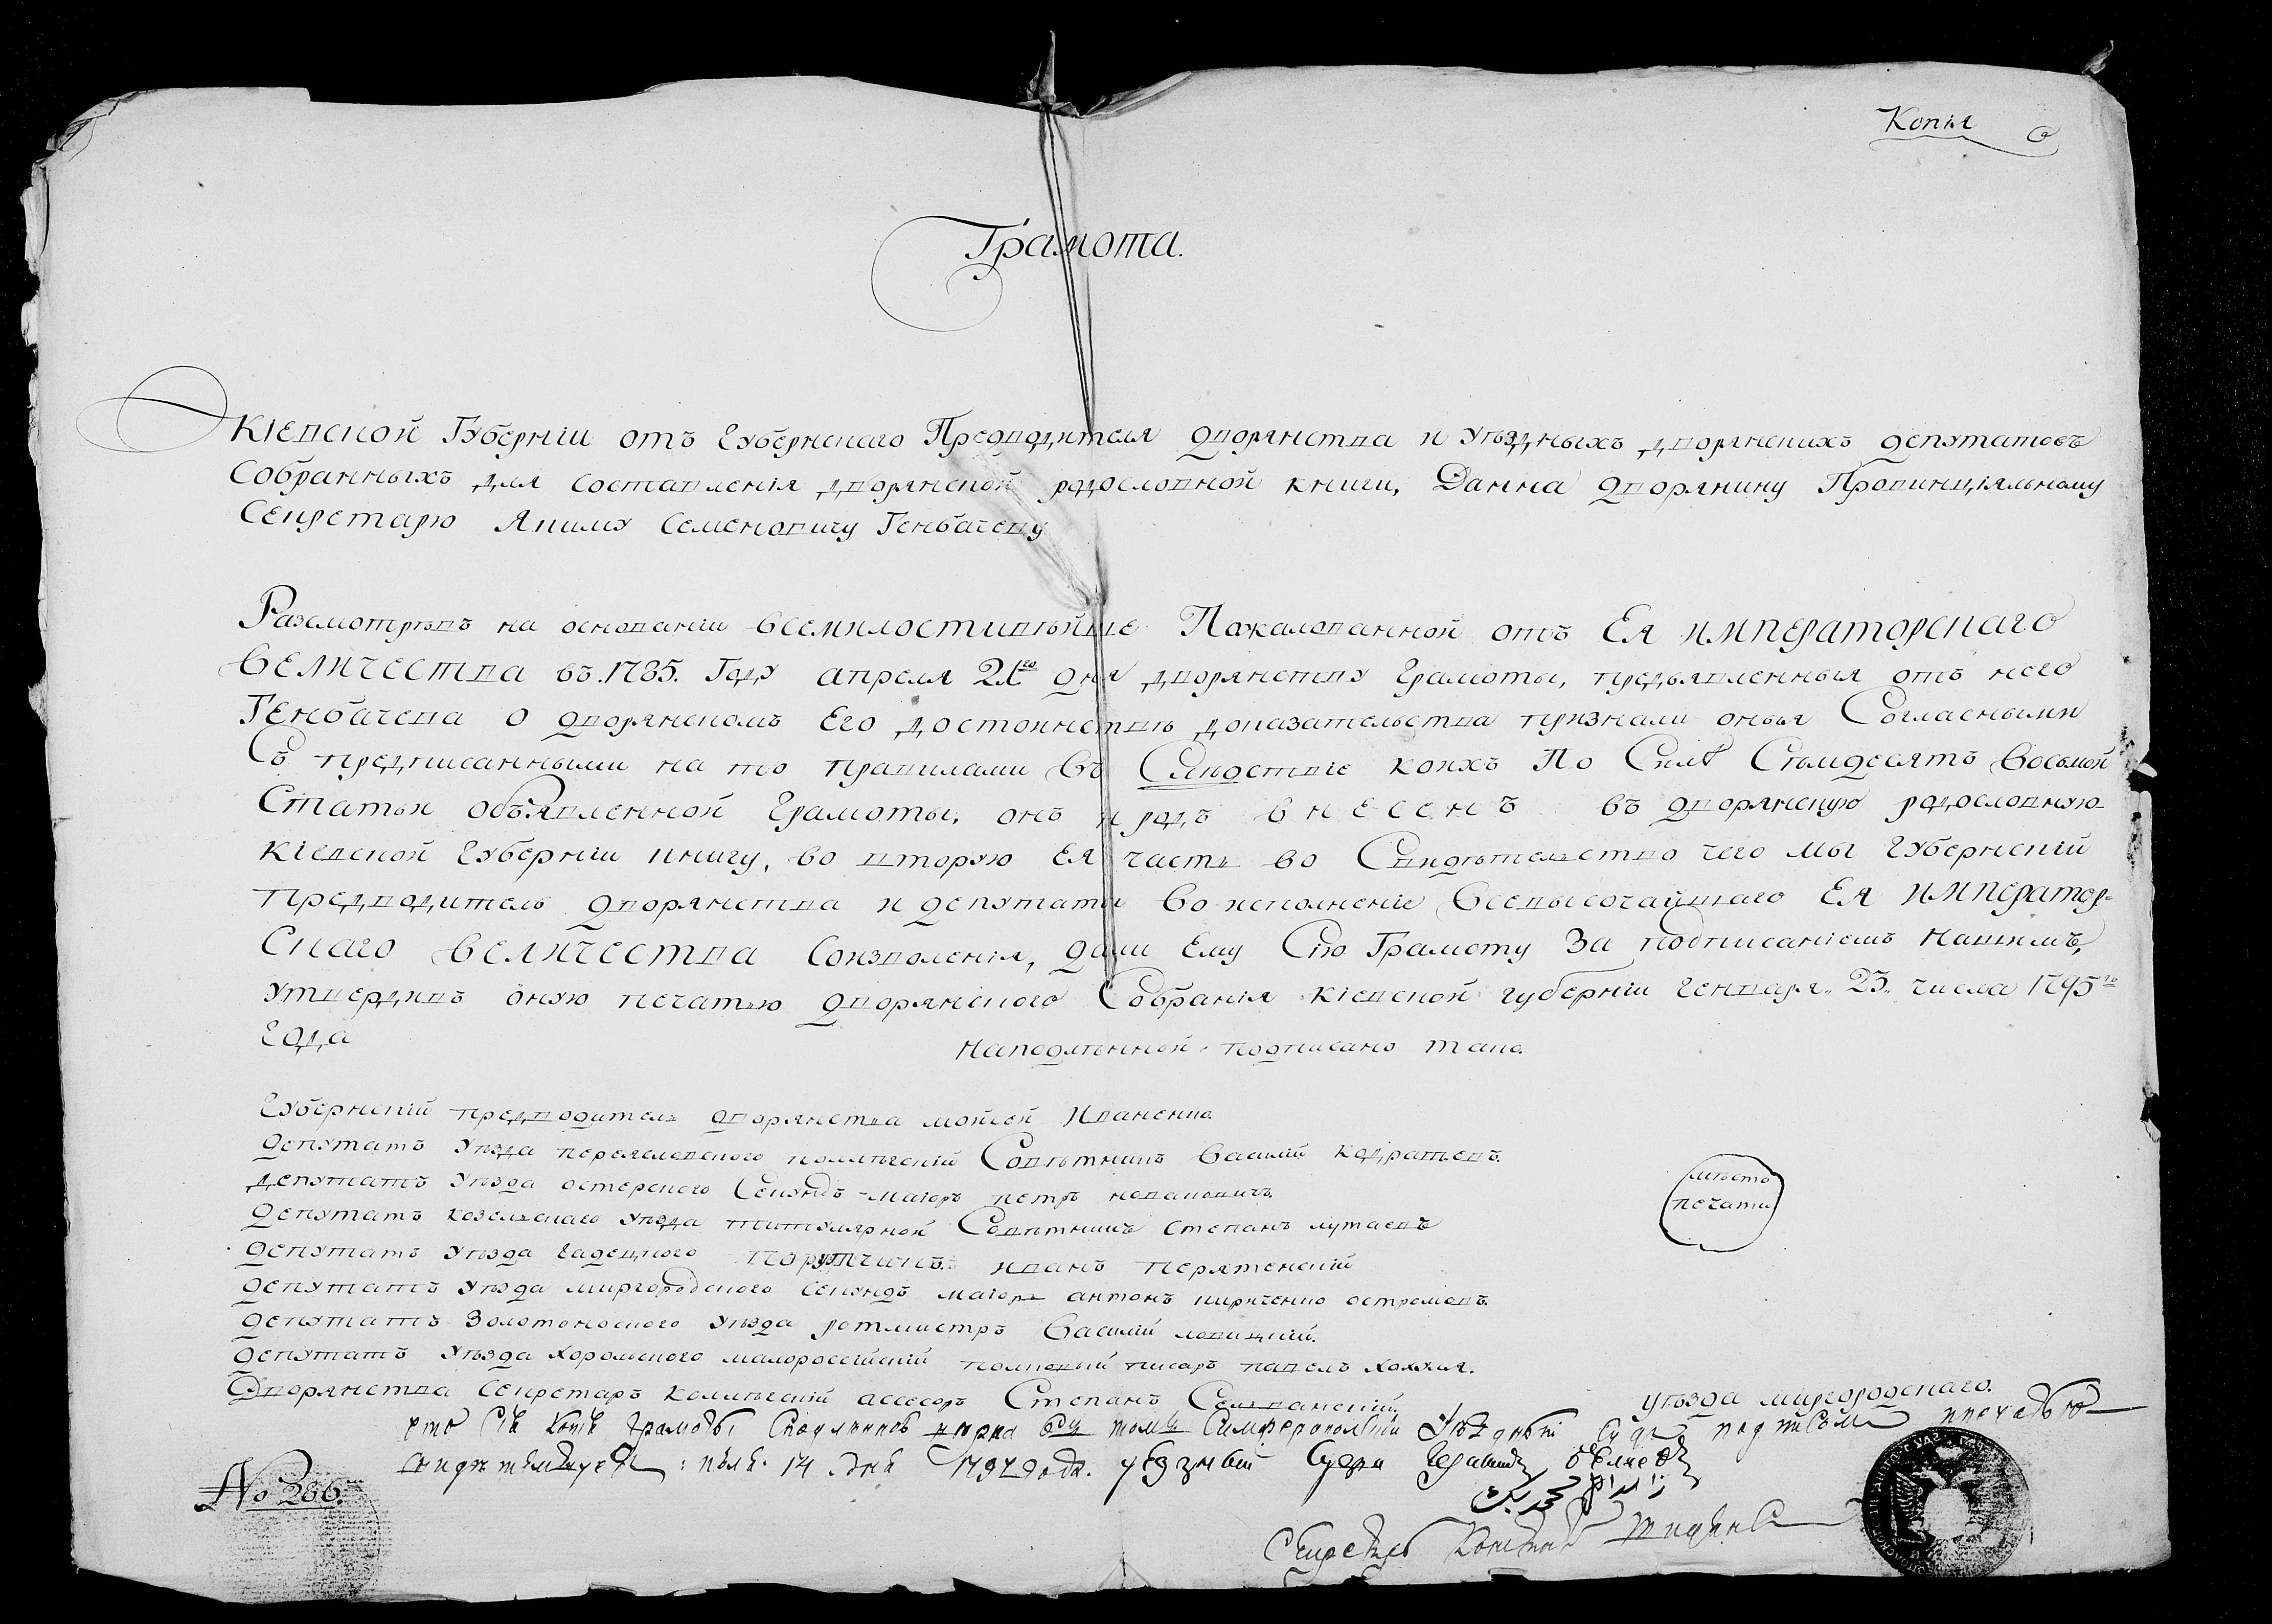 Копія
Грамота.
Кіевской Губерніи отъ Губернскаго Предводителя дворянства и Уѣздныхъ дворянскихъ депутатовъ
собранныхъ для составленія дворянской родословной книги, Данна дворянину Провинціяльному
Секретарю Якиму Семеновичу Генбачеву
Разсмотрѣвъ на основаніи всемилостивѣйше Пожалованной отъ Ея императорскаго
величества въ 1785. Году апреля 21го дня дворянству Грамоты, предъявленныя отъ него
Генбачева о дворянскомъ Его достоинствѣ доказательства признали оныя Согласными
Съ предписанными на то правилами въ Слѣдствіе коихъ По Силѣ Семдесятъ восьмой
Статьи объявленной Грамоты, онъ и родъ внесенъ въ дворянскую родословную
кіевской Губерніи книгу, во вторую Ея часть во Свидѣтельство чего мы Губернскій
предводитель дворянства и депутаты во исполненіе всевысочайшаго Ея император=
Скаго величества Соизволенія, дали Ему Сію Грамоту За подписаніемъ нашимъ,
утвердивъ оную печатью дворянского Собранія кіевской губерніи генваря „25„ числа 1795го
Года
На подлѣнной подписано тако.
Губернскій предводитель дворянства мойсей Иваненко.
Депутатъ Уѣзда переяславского коллѣгскій Совѣтникъ василій кодратьевъ.
депутатъ Уѣзда остерского Секундъ-маіоръ петръ новаковичъ
депутатъ козельскаго Уѣзда титулярной Совѣтникъ степанъ лутаевъ
депутатъ Уѣзда гадецкого поручикъ иванъ перятенскій
депутатъ Уѣзда миргородского секундъ маіоръ антонъ кириченко остромовъ.
депутатъ Золотоноского Уѣзда ротмистръ василій левицкій.
депутатъ Уѣзда хорольского малоросейскій полковый писаръ павелъ
Дворянства секретаръ коллѣгскій ассесоръ Степанъ
мѣсто
печати
Уѣзда миргородскаго.
что Сія Копія грамоты Симферопольскій Уѣздный Судъ подписомъ и печатью
свидѣтельствуетъ: 14 дня 1797 года. уѣздный Судья
محمد بك
Секретарь
№ 286.